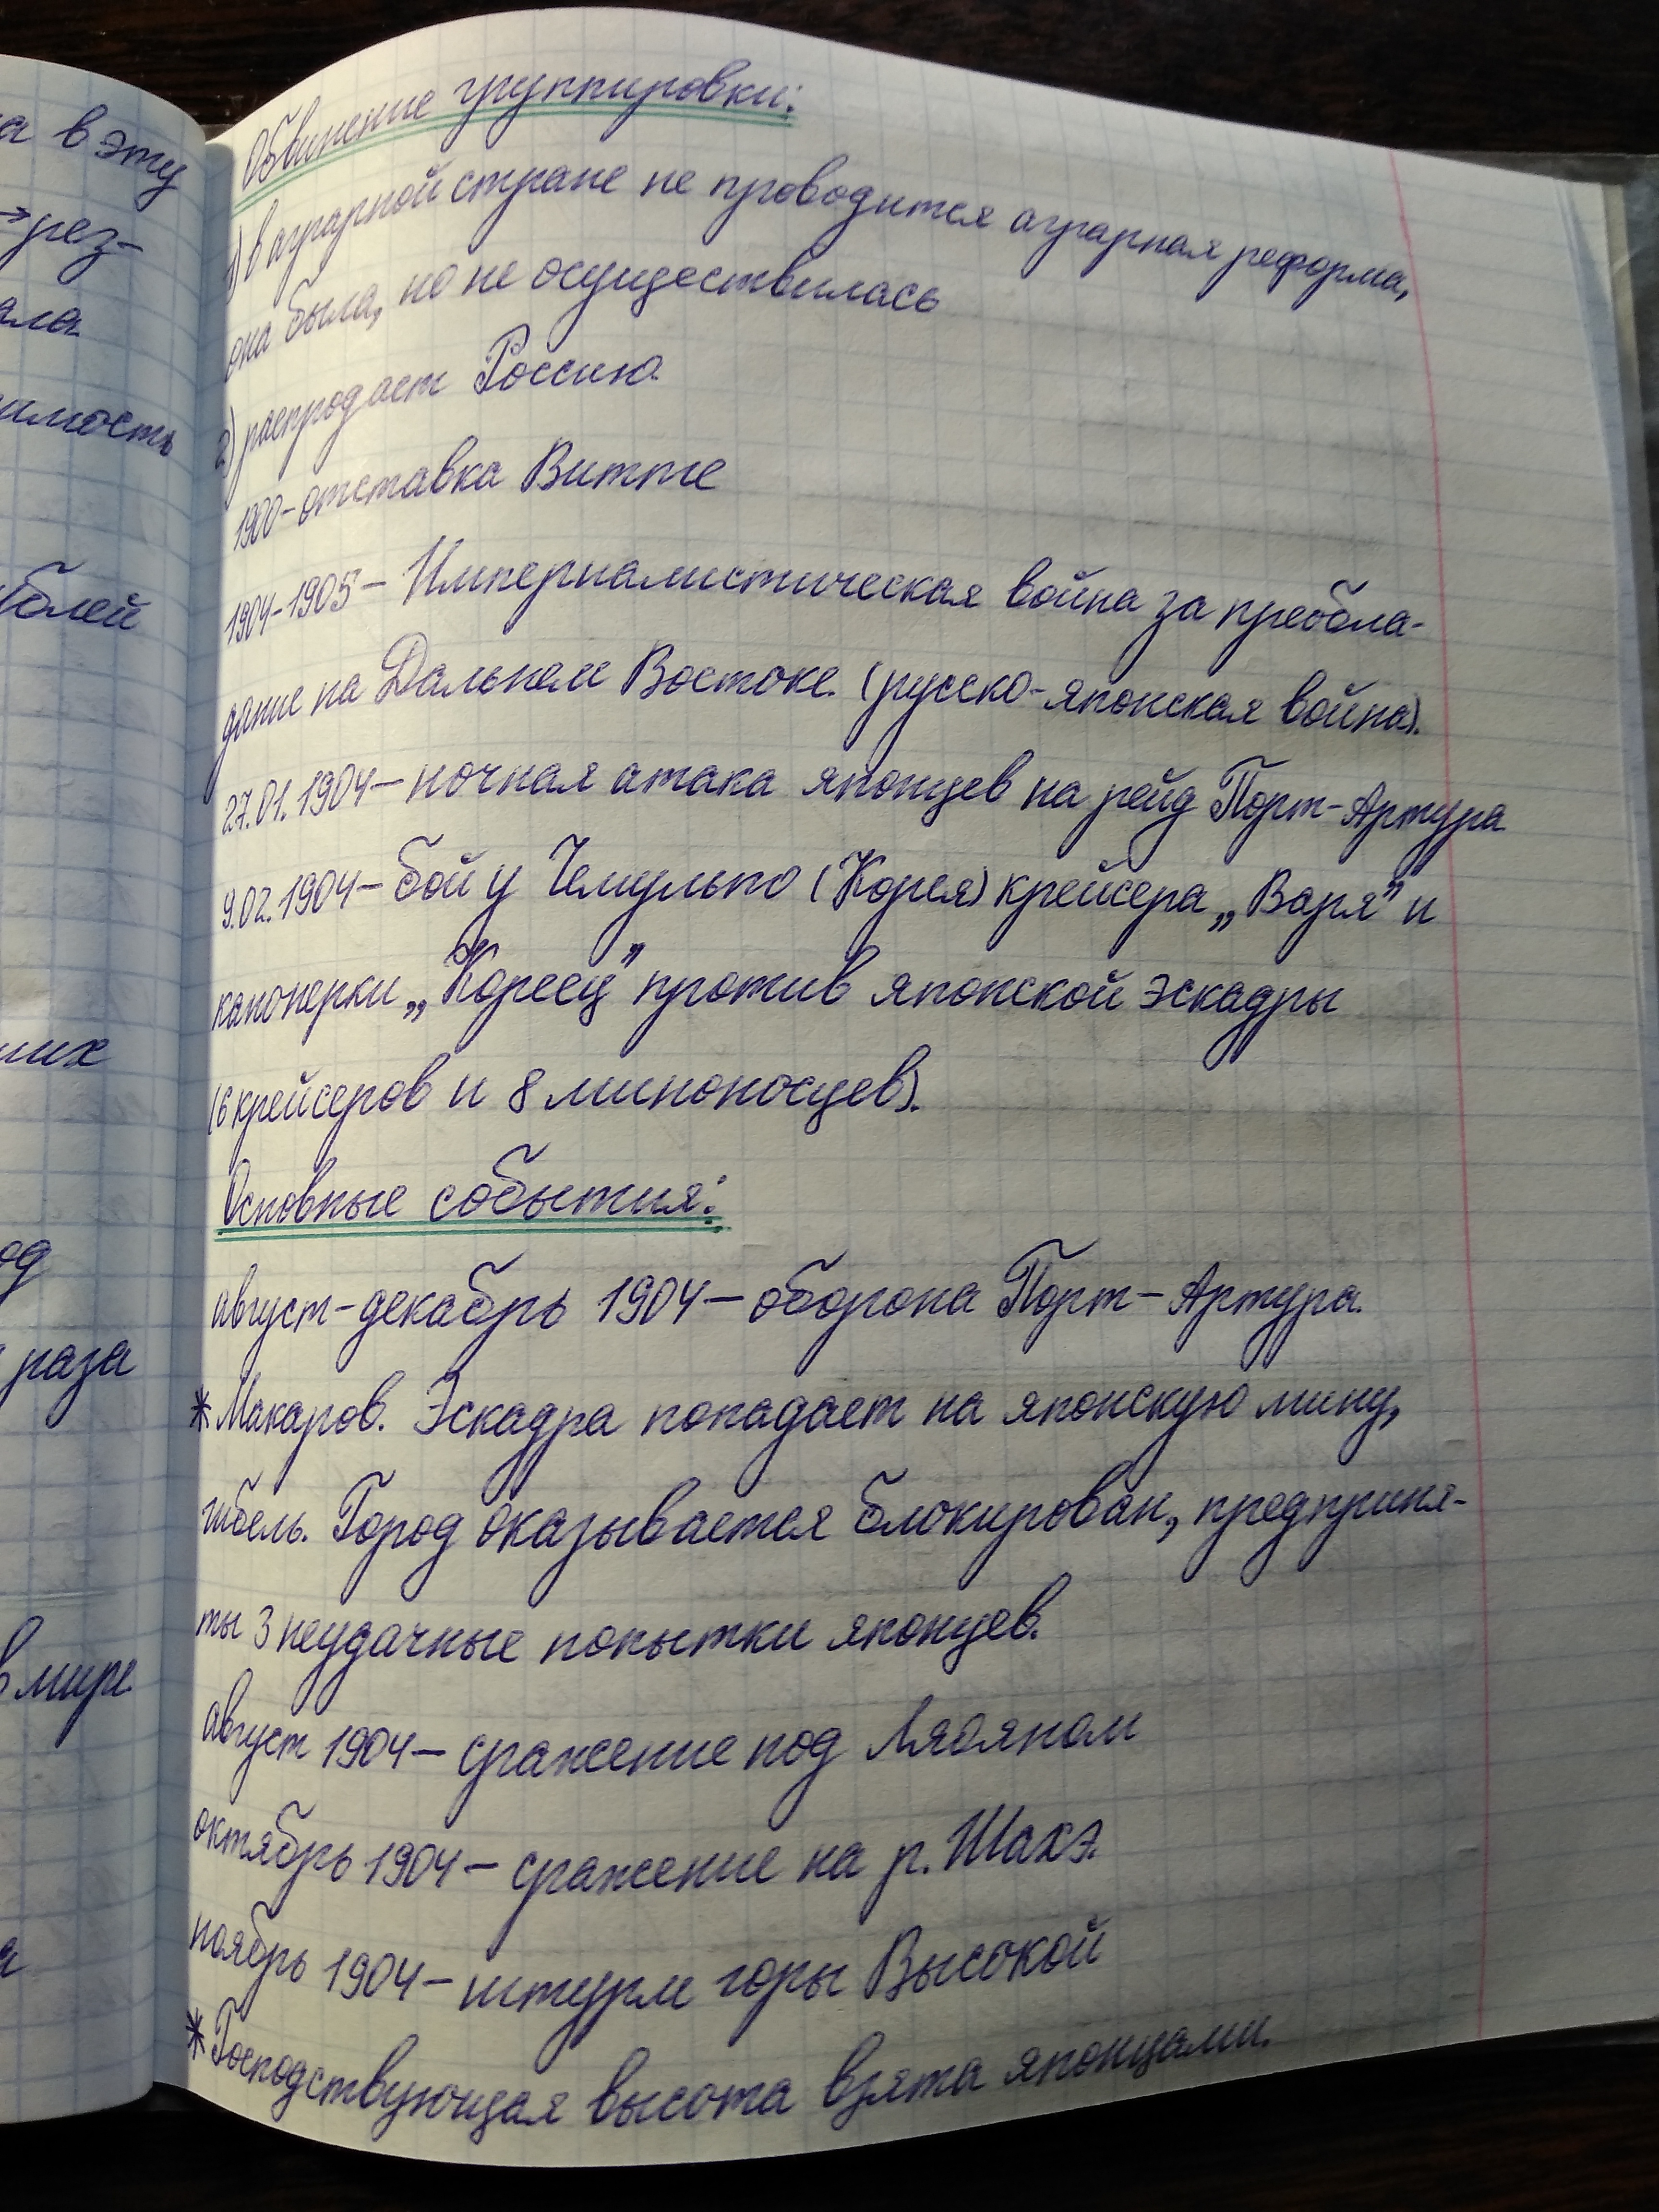 а в эту
→рез-
ала
имость
блей
ших
од
раза
в мире
Обвинение группировки:
1) в аграрной стране не проводится аграрная реформа,
она была, но не осуществилась
2) распродает Россию.
1900-отставка Витте
1904-1905- Империалистическая война за преобла-
дание на Дальнем Востоке. (русско-японская война).
27.01.1904- ночная атака японцев на рейд Порт-Артура
9.02.1904- бой у Чемульпо (Корея) крейсера „Варя" и
канонерки „Кореец" против японской эскадры
(6 крейсеров и 8 миноносцев).
Основные события:
август-декабрь 1904-оборона Порт-Артура.
*Макаров. Эскадра попадает на японскую мину,
гибель. Город оказывается блокирован, предприня-
ты 3 неудачные попытки японцев.
август 1904- сражение под Ляояном
октябрь 1904- сражение на р. Шахэ.
ноябрь 1904- штурм горы Высокой
*Господствующая высота взята японцами.